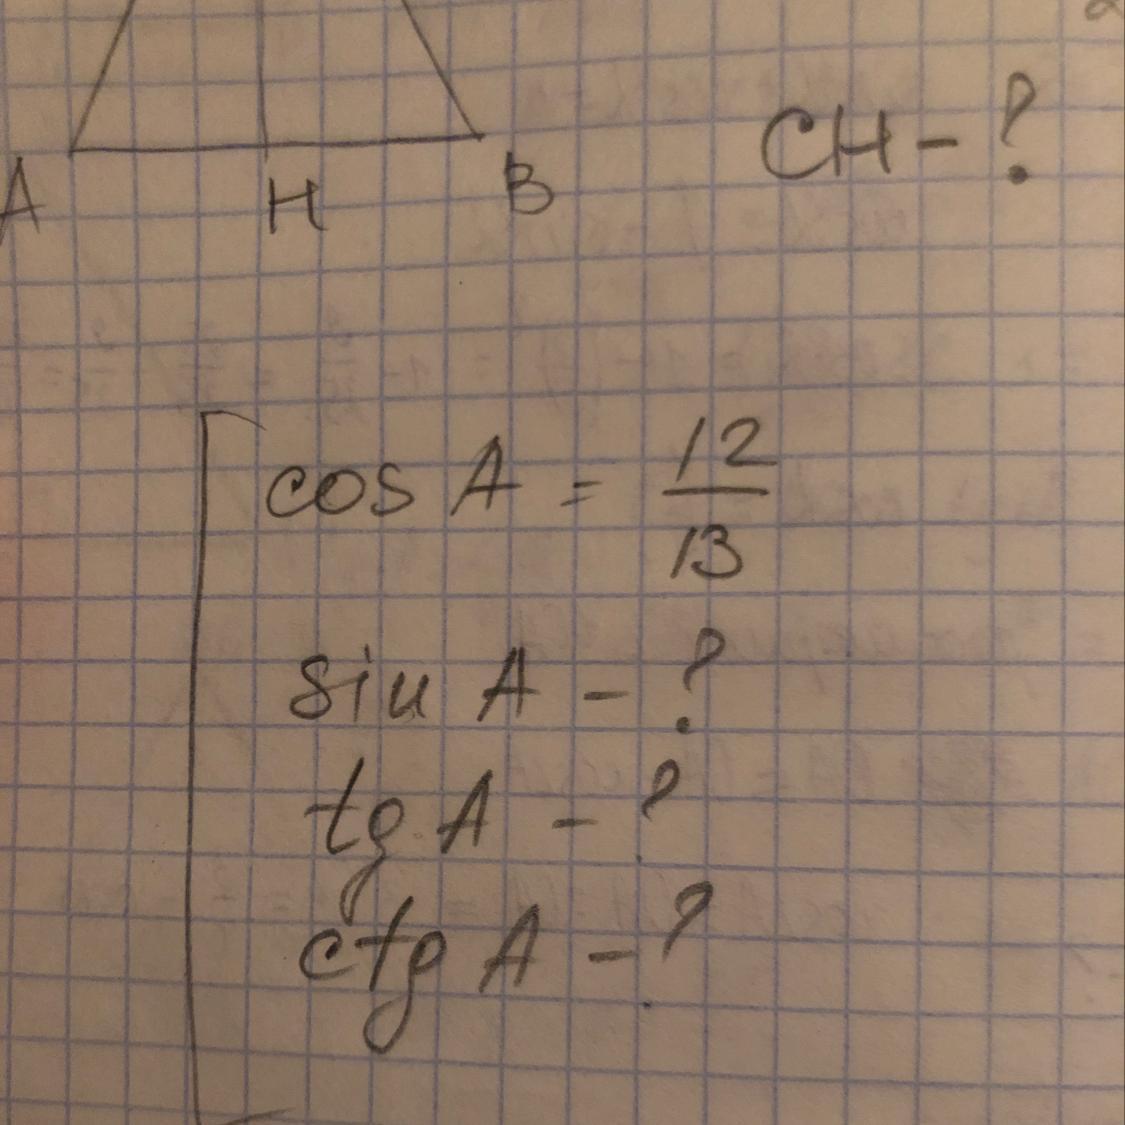 CH - ?
A H B
cos A = 12/13
sin A - ?
tg A - ?
ctg A - ?